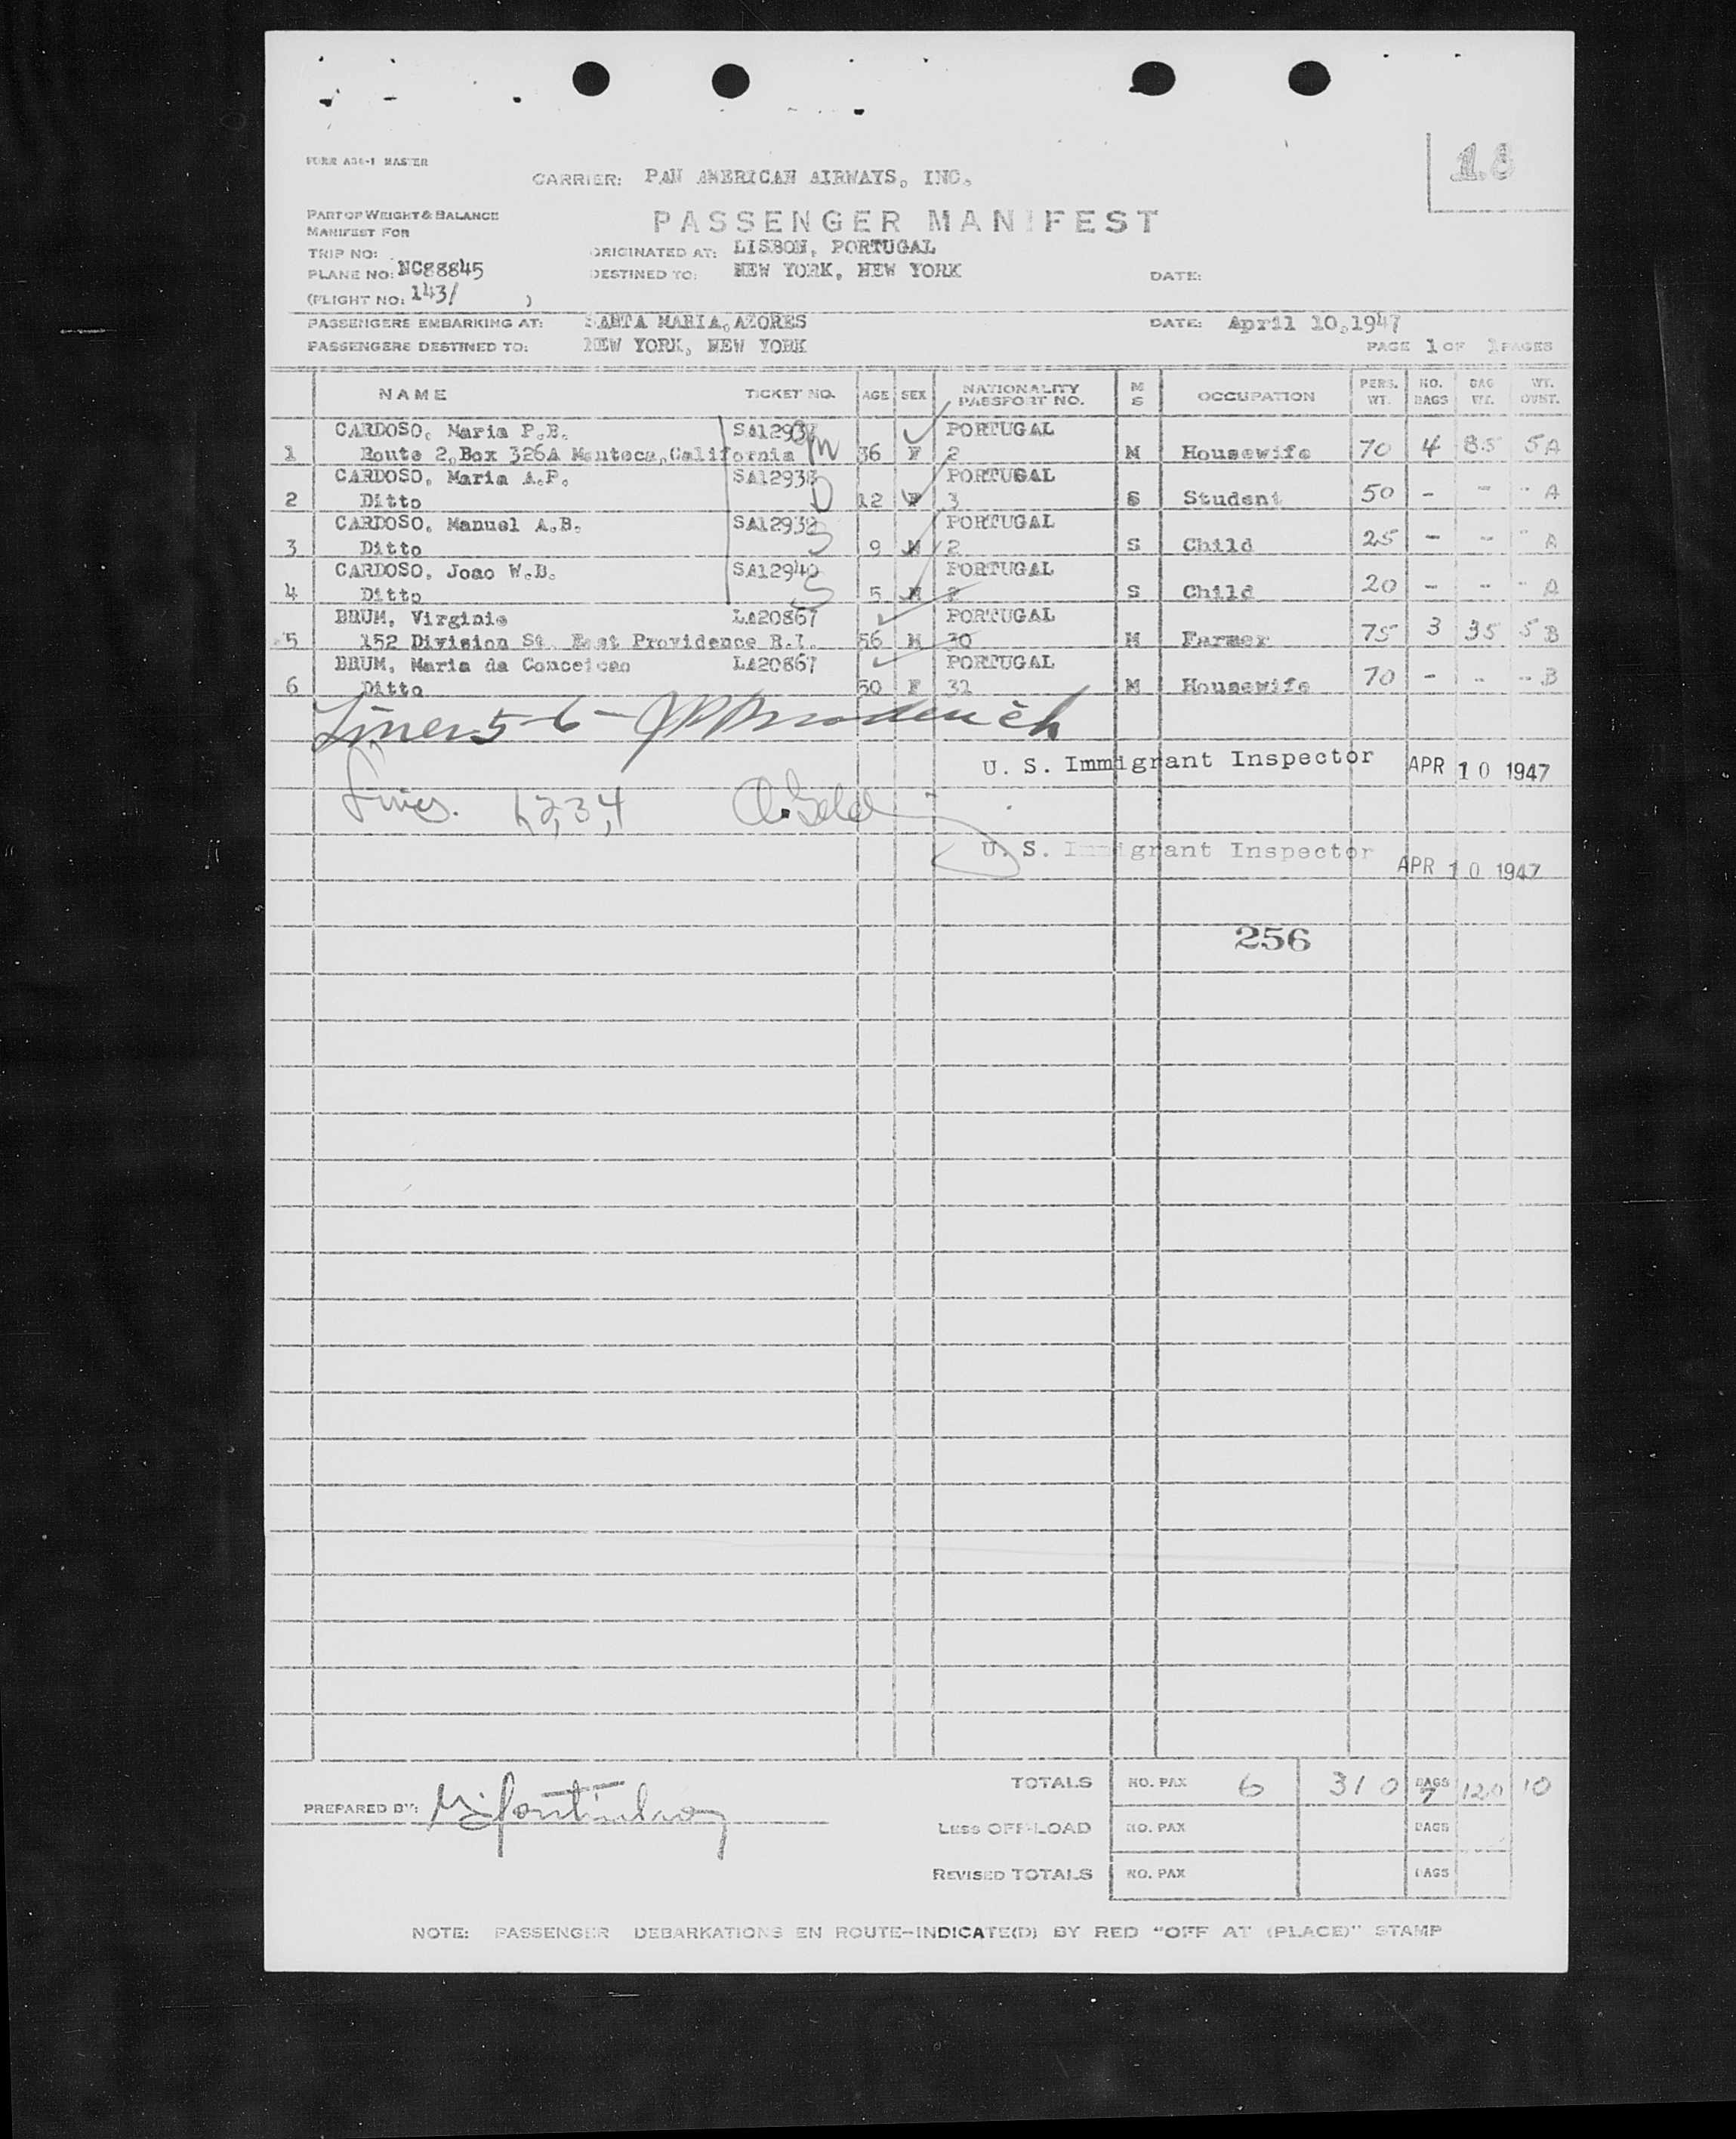 FORM A36-1 MASTER
CARRIER: PAN AMERICAN AIRWAYS, INC.
PART OF WEIGHT & BALANCE
MANIFEST FOR
PASSENGER MANIFEST
TRIP NO:
ORIGINATED AT: LISBON, PORTUGAL
PLANE NO: NC88845
DESTINED TO: NEW YORK, NEW YORK
DATE:
(FLIGHT NO: 143/ )
PASSENGERS EMBARKING AT: SANTA MARIA, AZORES
DATE: April 10,1947
PASSENGERS DESTINED TO: NEW YORK, NEW YORK
PAGE 1 OF 1 PAGES
NAME TICKET NO. AGE SEX NATIONALITY PASSPORT NO. M S OCCUPATION PERS. WT. NO. BAGS BAG WT. WT. OVST.
CARDOSO, Maria P.B. SA12937 PORTUGAL
1 Route 2, Box 326A Manteca, California M 36 F 2 M Housewife 70 4 85 5A
CARDOSO, Maria A.P. SA12938 PORTUGAL
2 Ditto D 12 F 3 S Student 50 - - - A
CARDOSO, Manuel A.B. SA12939 PORTUGAL
3 Ditto S 9 M 2 S Child 25 - - - A
CARDOSO, Joao W.B. SA12940 PORTUGAL
4 Ditto S 5 M 2 S Child 20 - - - A
BRUM, Virginio LA20867 PORTUGAL
5 152 Division St. East Providence R.I. 56 M 30 M Farmer 75 3 35 5 B
BRUM, Maria da Conceicao LA20867 PORTUGAL
6 Ditto 50 F 32 M Housewife 70 - - - B
Lines 5-6 -
U. S. Immigrant Inspector APR 10 1947
Lines. 1,2,3,4
U. S. Immigrant Inspector APR 10 1947
256
TOTALS NO. PAX 6 310 BAGS 7 120 10
PREPARED BY:
LESS OFF-LOAD NO. PAX BAGS
REVISED TOTALS NO. PAX BAGS
NOTE: PASSENGER DEBARKATIONS EN ROUTE-INDICATE(D) BY RED "OFF AT (PLACE)" STAMP